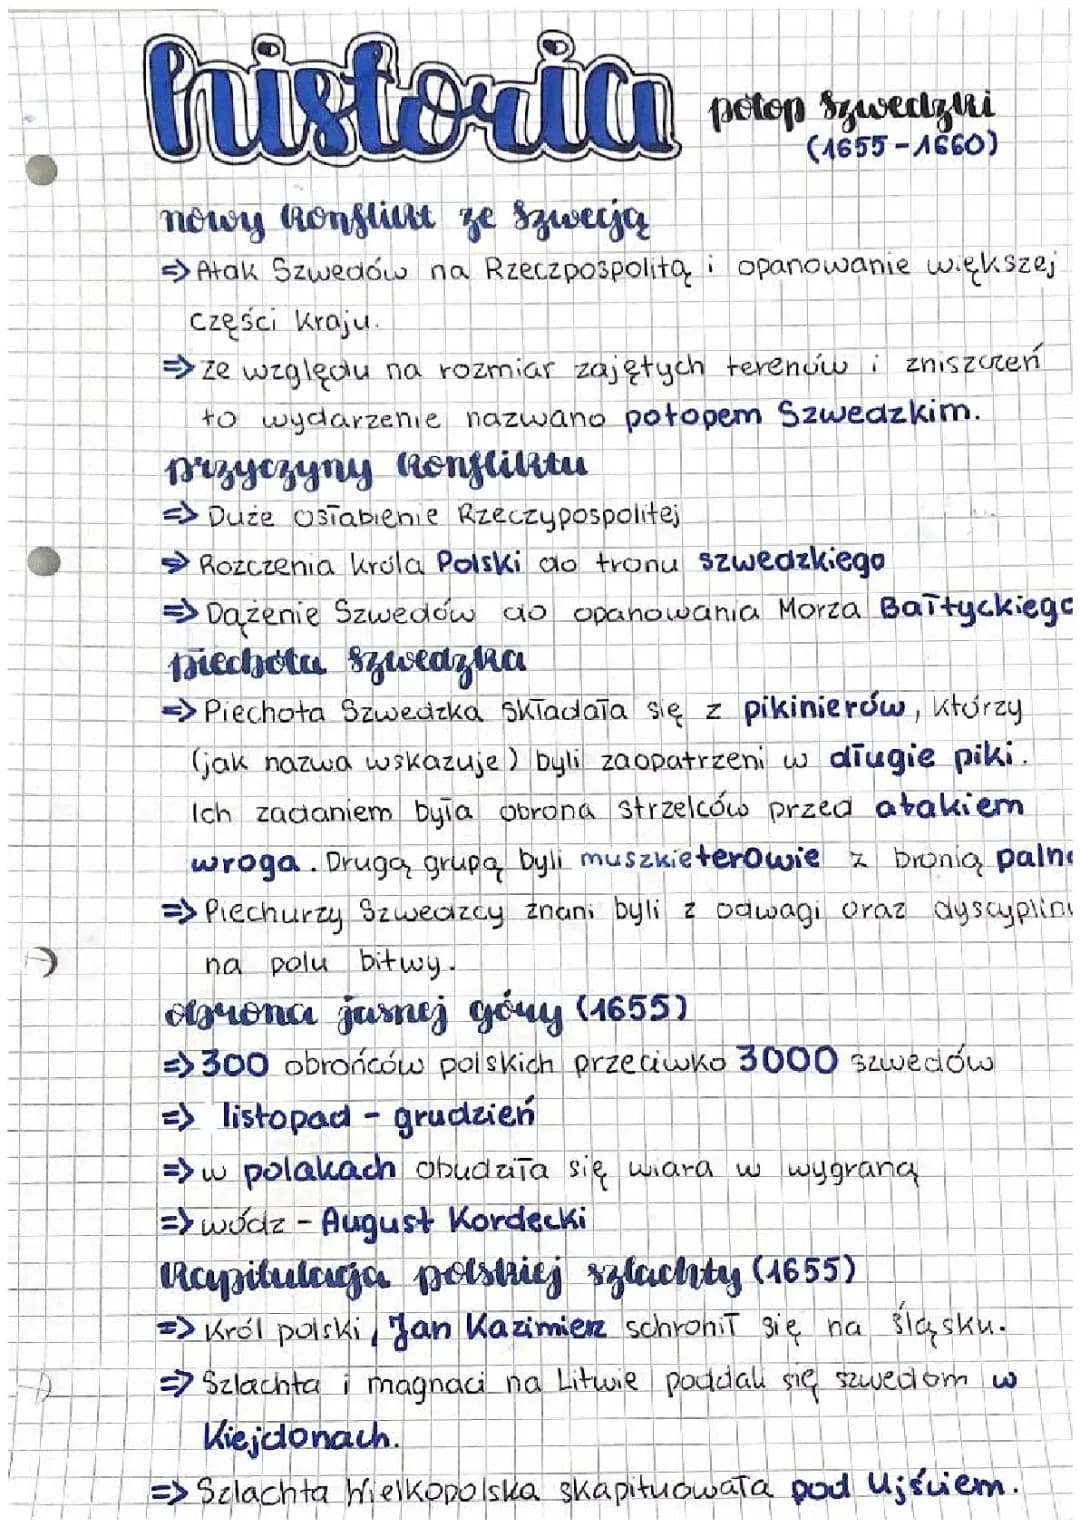 historia
potop szwedzki
(1655-1660)
nowy konflikt ze szwecją
=> Atak Szwedów na Rzeczpospolitą i opanowanie większej
części kraju.
=> ze względu na rozmiar zajętych terenów i zniszczeń
to wydarzenie nazwano potopem Szwedzkim.
przyczyny konfliktu
=> Duże osłabienie Rzeczypospolitej
=> Rozczenia króla Polski do tronu szwedzkiego
=> Dążenie Szwedów do opanowania Morza Bałtyckiego
piechota szwedzka
=> Piechota Szwedzka składała się z pikinierów, którzy
(jak nazwa wskazuje) byli zaopatrzeni w długie piki.
Ich zadaniem była obrona strzelców przed atakiem
wroga. Drugą grupą byli muszkieterowie z bronią palną
=> Piechurzy Szwedzcy znani byli z odwagi oraz dyscyplin
na polu bitwy.
obrona jasnej góry (1655)
=> 300 obrońców polskich przeciwko 3000 szwedów
=> listopad - grudzień
=> w polakach obudziła się wiara w wygraną
=> wódz - August Kordecki
kapitulacja polskiej szlachty (1655)
=> Król polski, Jan Kazimierz schronił się na śląsku.
=> Szlachta i magnaci na Litwie poddali się szwedom w
Kiejdonach.
=> Szlachta Wielkopolska skapitulowała pod Ujściem.